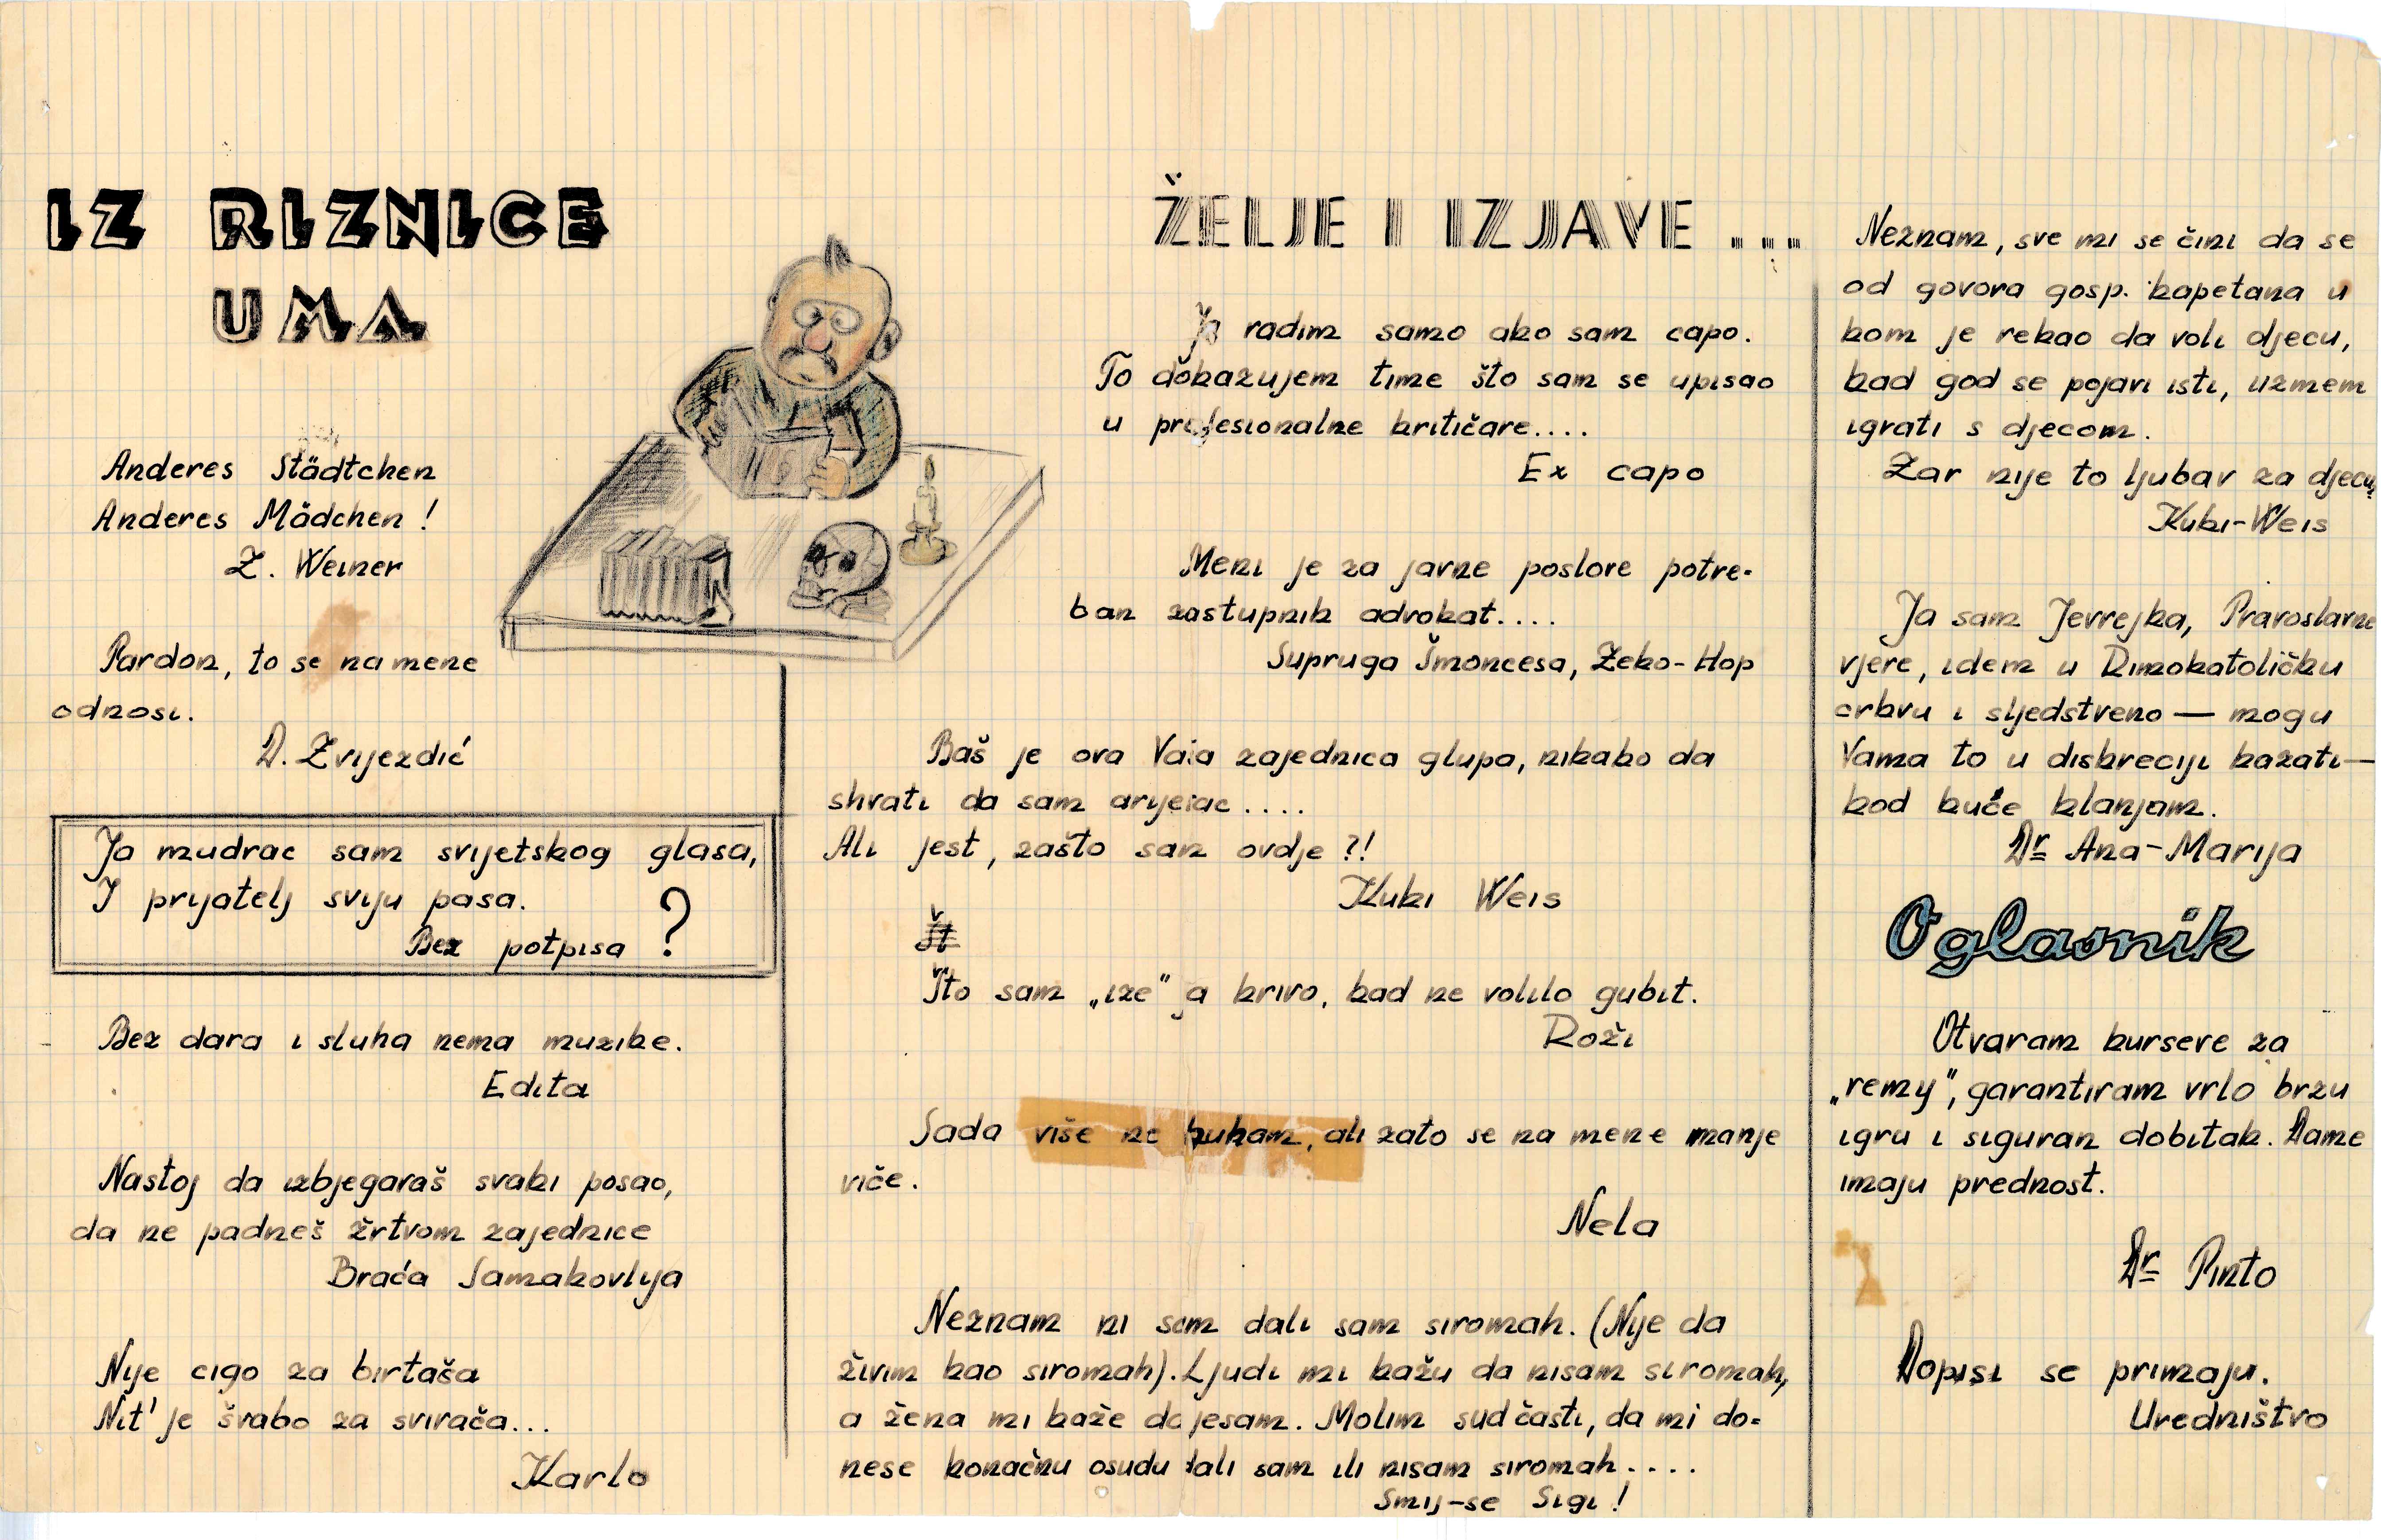 IZ RIZNICE
UMA
Anderes Städtchen
Anderes Mädchen !
Z. Weiner
Pardon, to se na mene
odnosi.
D. Zvijezdić
Ja mudrac sam svijetskog glasa,
I prijatelj sviju pasa.
Bez potpisa ?
Bez dara i sluha nema muzike.
Edita
Nastoj da izbjegavaš svaki posao,
da ne padneš žrtvom zajednice
Braća Samakovlija
Nije cigo za birtaša
Nit' je švabo za svirača...
Karlo
ŽELJE I IZJAVE ...
Ja radim samo ako sam capo.
To dokazujem time što sam se upisao
u profesionalne kritičare....
Ex capo
Meni je za javne poslove potre-
ban zastupnik advokat....
Supruga Šmoncesa, Zeko-Hop
Baš je ova Vaša zajednica glupa, nikako da
shvati da sam arijevac ....
Ali jest, zašto sam ovdje ?!
Kuki Weis
Št
Što sam „ize" ja krivo, kad ne volilo gubit.
Roži
Sada više ne kuham, ali zato se na mene manje
viče.
Nela
Neznam ni sam dali sam siromah. (Nije da
živim kao siromah). Ljudi mi kažu da nisam siromah,
a žena mi kaže da jesam. Molim sud časti, da mi do=
nese konačnu osudu dali sam ili nisam siromah....
Smij-se Sigi !
Neznam, sve mi se čini da se
od govora gosp. kapetana u
kom je rekao da voli djecu,
kad god se pojavi isti, uzmem
igrati s djecom.
Zar nije to ljubav za djecu?
Kuki-Weis
Ja sam Jevrejka, Pravoslavne
vjere, idem u Rimokatoličku
crkvu i sljedstveno — mogu
Vama to u diskreciji kazati—
kod kuče klanjam.
Dr Ana-Marija
Oglasnik
Otvaram kurseve za
„remy", garantiram vrlo brzu
igru i siguran dobitak. Dame
imaju prednost.
Dr Pinto
Dopisi se primaju.
Uredništvo